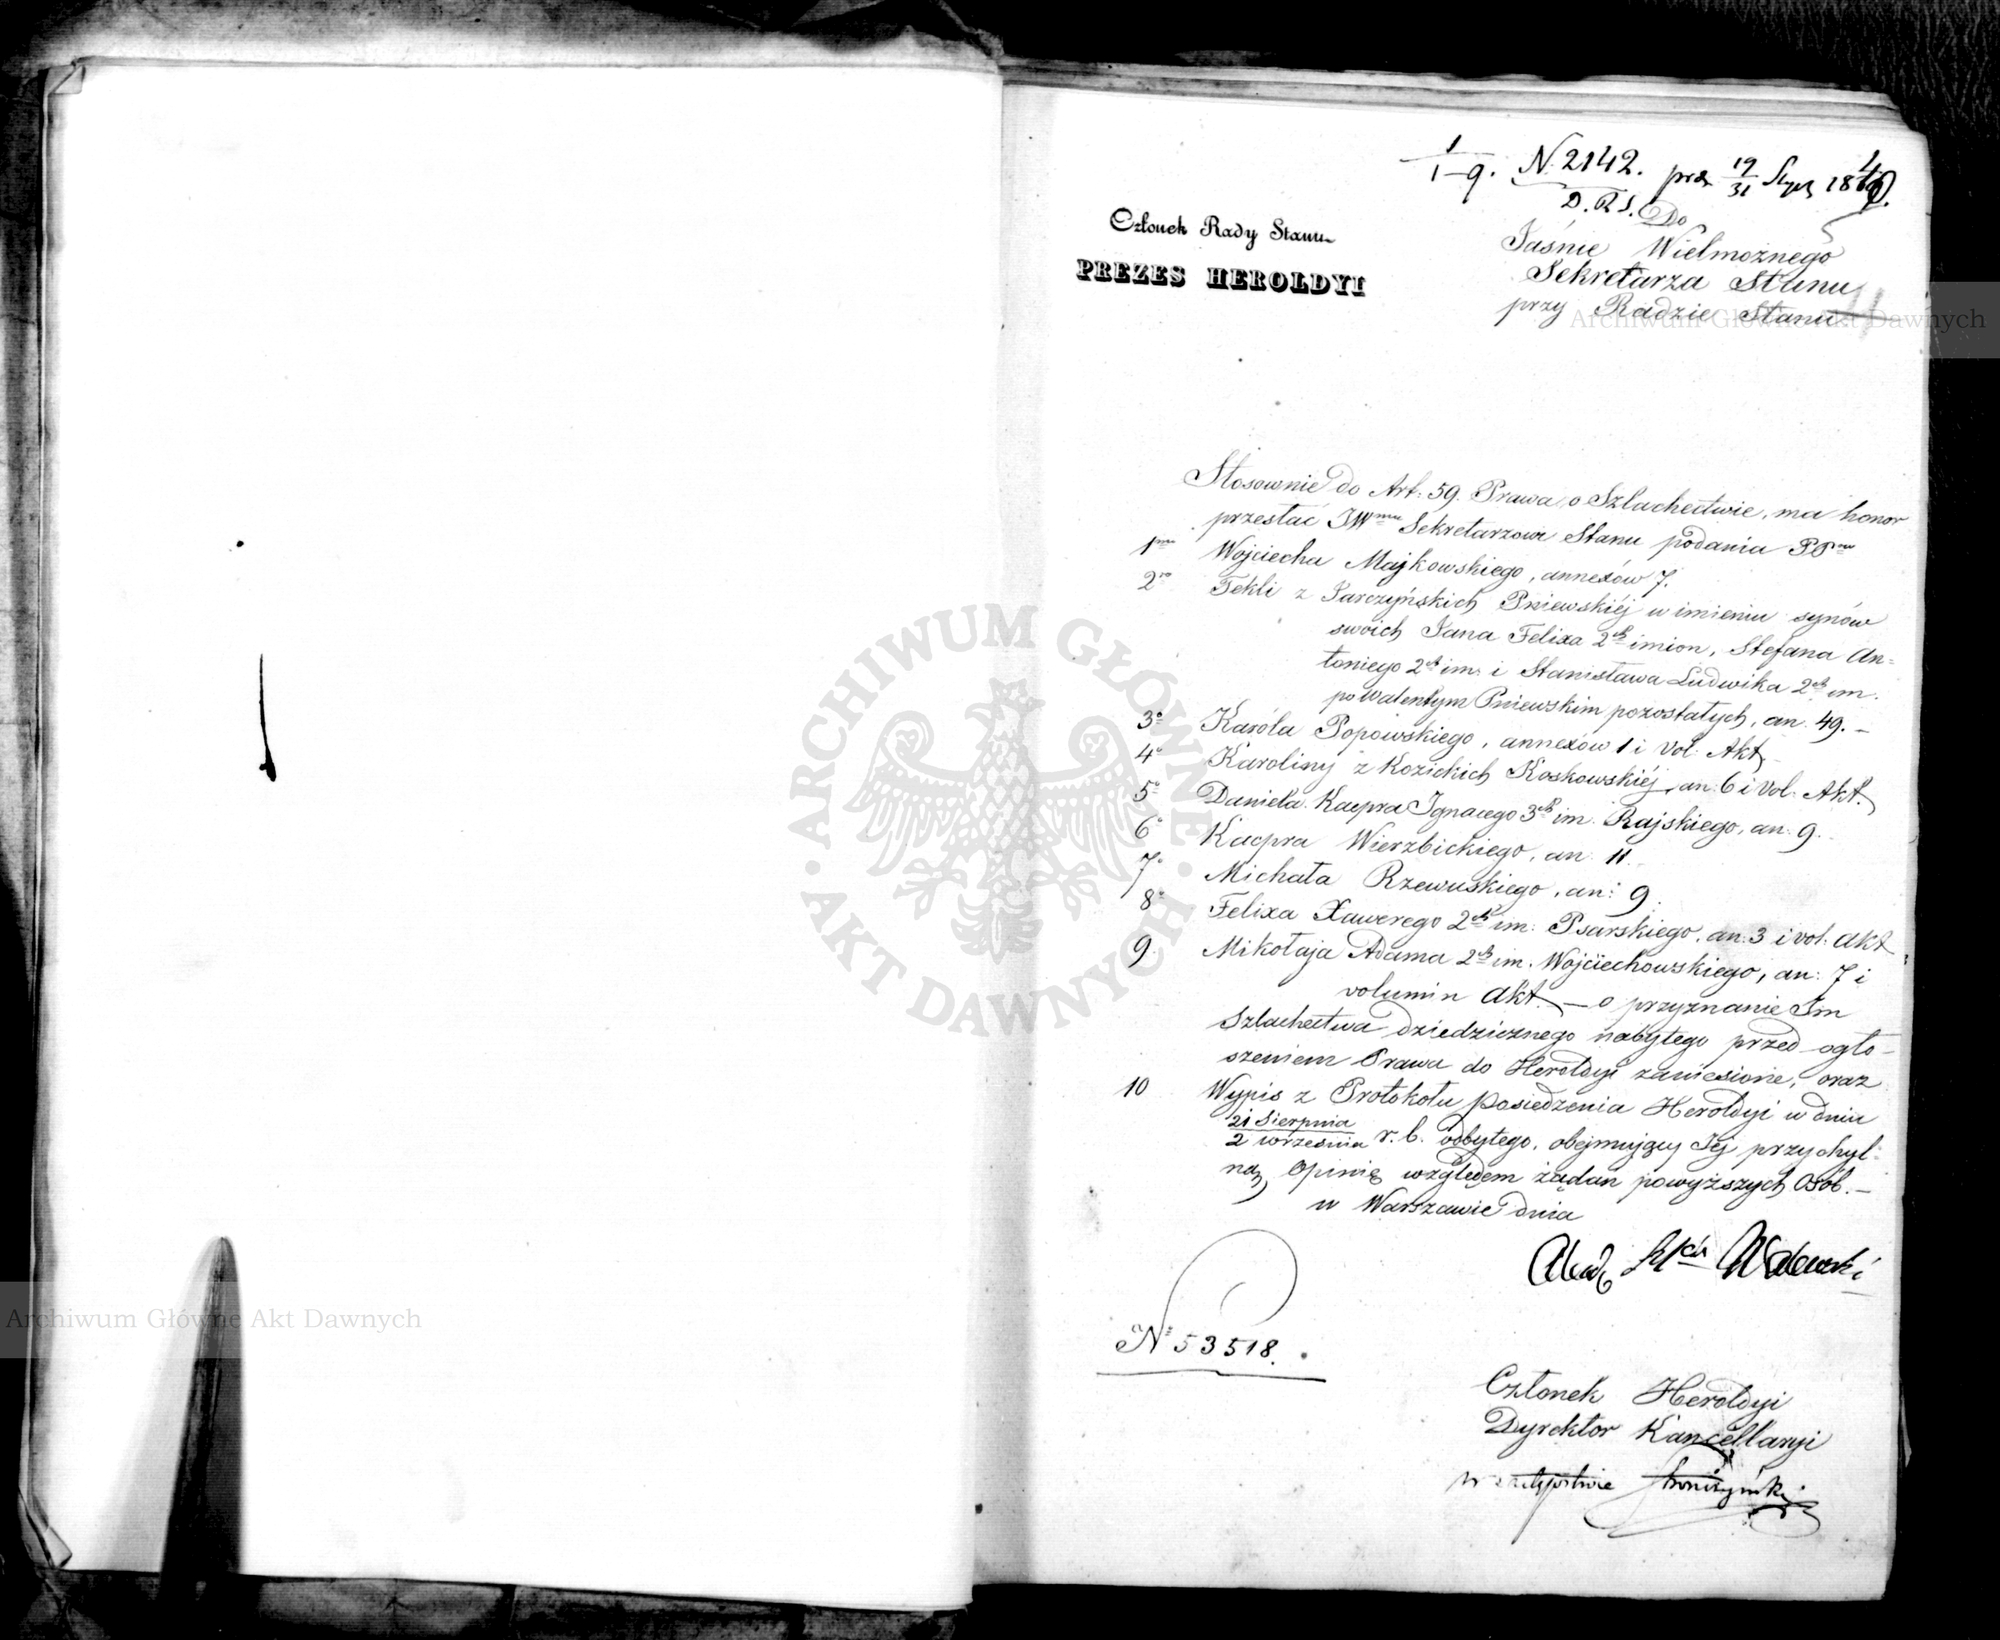 1
1-9. N. 2142. prez 19/31 Stycz 1840.
D. R. S.
Członek Rady Stanu
PREZES HEROLDYI
Do
Jaśnie Wielmożnego
Sekretarza Stanu
przy Radzie Stanu
Stosownie do Art: 59. Prawa o Szlachectwie, ma honor
przesłać JWmu Sekretarzowi Stanu podania PPow
1mo Wojciecha Majkowskiego, annexów 7.
2do Tekli z Jarczyńskich Pniewskiéj w imieniu synów
swoich Jana Felixa 2ch imion, Stefana An=
toniego 2ch im: i Stanisława Ludwika 2ch im.
po Walentym Pniewskim pozostałych, an. 49. –
3o Karóla Popowskiego, annexów 1 i vol: Akt.
4o Karoliny z Kozickich Koskowskiéj, an: 6 i vol: Akt.
5o Daniela Kacpra Ignacego 3ch im. Rajskiego, an: 9.
6o Kacpra Wierzbickiego, an 11.
7o Michała Rzewuskiego, an: 9.
8o Felixa Xawerego 2ch im: Psarskiego, an: 3 i vol: akt
9. Mikołaja Adama 2ch im. Wojciechowskiego, an: 7 i
volumin akt. – o przyznanie Im
Szlachectwa dziedzicznego nabytego przed ogło-
szeniem Prawa do Heroldyi zaniesione, oraz
10 Wypis z Protokołu posiedzenia Heroldyi w dniu
21 Sierpnia/2 września r. b. odbytego, obejmujący Jej przychyl=
ną Opinię względem żądań powyższych Osób. –
w Warszawie dnia
Walewski
No 53518.
Członek Heroldyi
Dyrektor Kancellaryi
w zastępstwie Stroniczyński
Archiwum Główne Akt Dawnych
ARCHIWUM GŁÓWNE · AKT DAWNYCH ·
Archiwum Główne Akt Dawnych